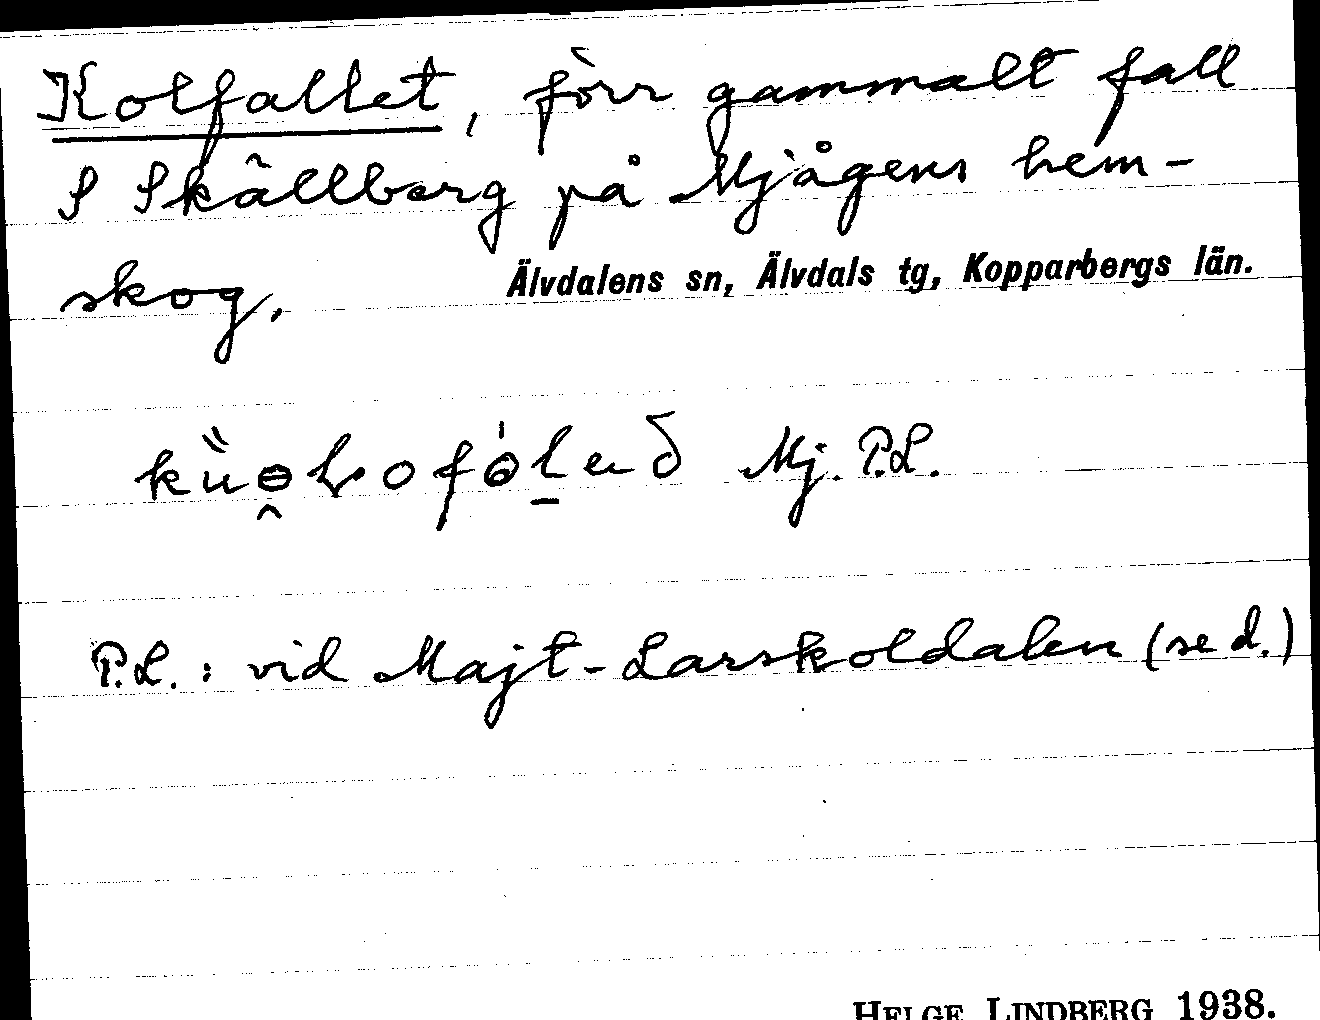 Kolfallet, förr gammalt fall
S Skällberg på Mjågens hem-
skog.
Älvdalens sn, Älvdals tg, Kopparbergs län.
Mj. P.L.
P.L.: vid Majt-Larskoldalen (se d.)
HELGE LINDBERG 1938.